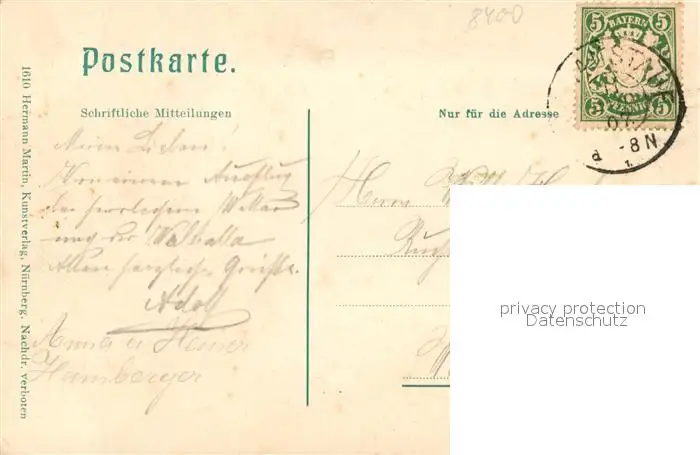 8400
Postkarte.
Schriftliche Mitteilungen
Nur für die Adresse
5 BAYERN 5
5 PFENNIG 5
07
8 N.
1610 Hermann Martin, Kunstverlag, Nürnberg. Nachdr. verboten
Meine Lieben!
Von einem Ausflug
bei herrlichem Wetter
nach der Walhalla
Allen herzliche Grüsse.
Adolf
Anna u Heiner
Hamberger
Herrn
privacy protection
Datenschutz